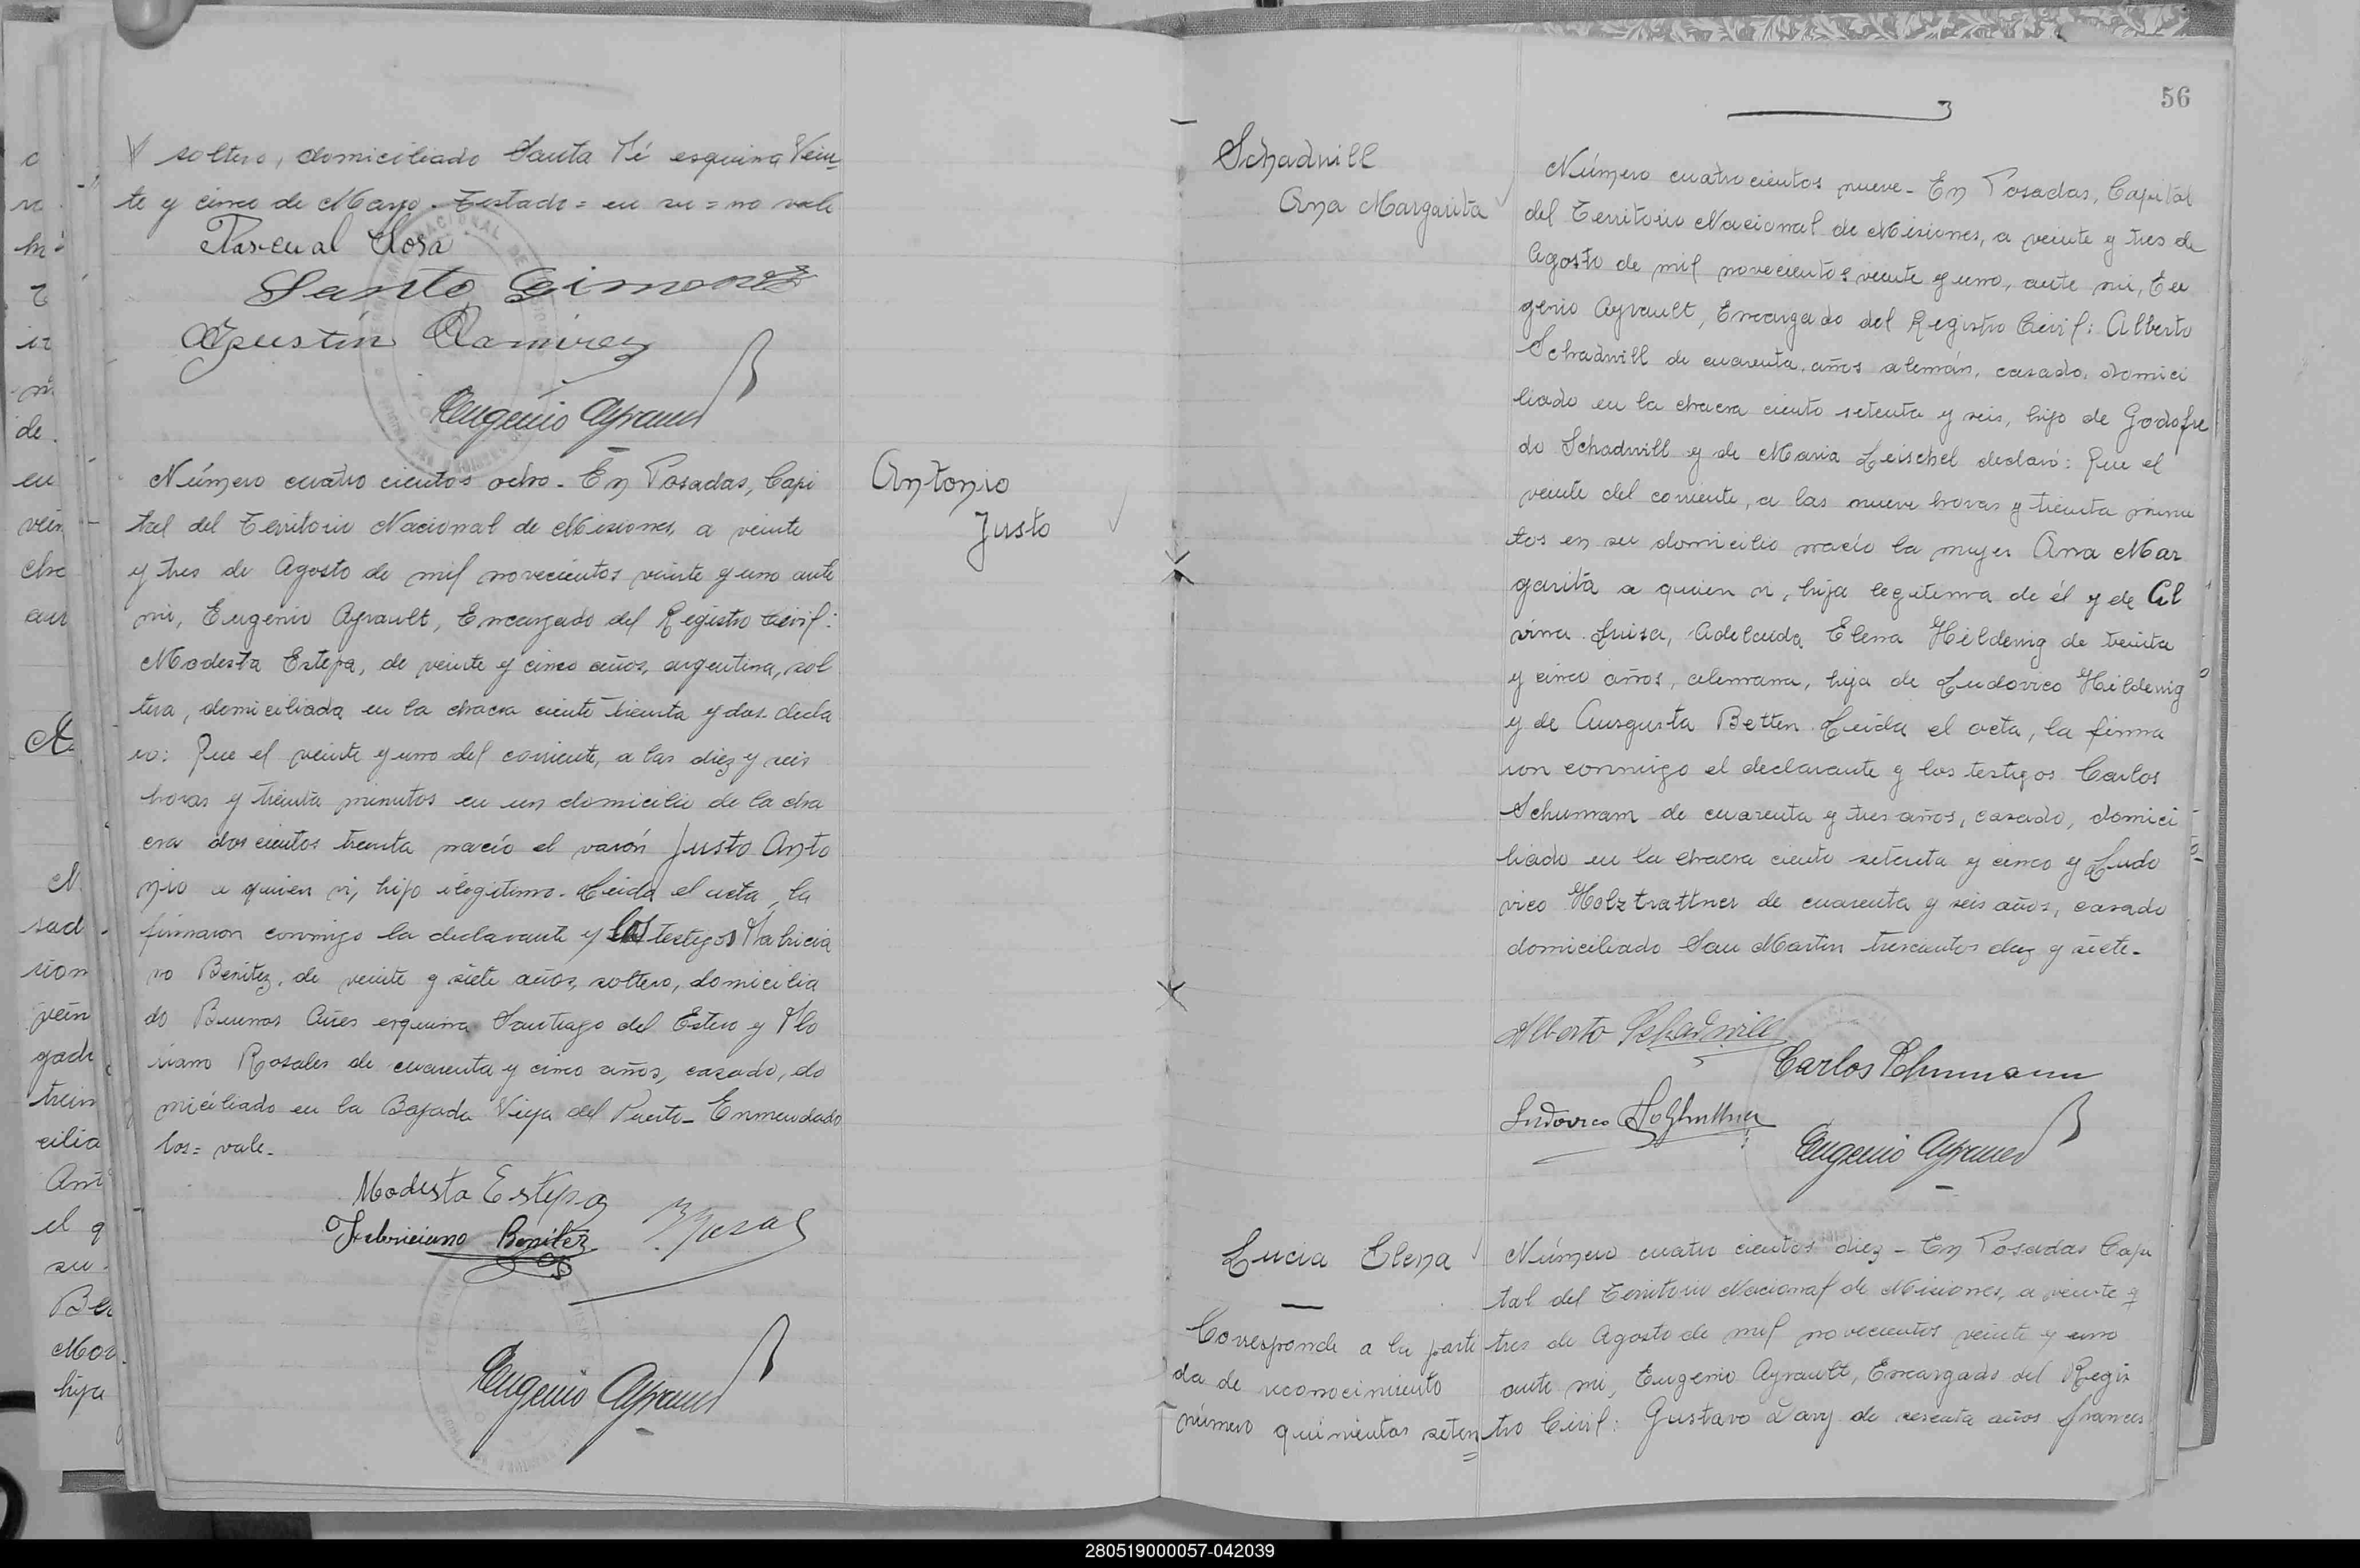 soltero, domiciliado Santa Fé esquina Vein
te y cinco de Mayo. Testado = en su = no vale
Pascual Rosa
Santo Gimenez
Agustín Ramirez
Eugenio Ayrault
Número cuatro cientos ocho. En Posadas, Capi
tal del Territorio Nacional de Misiones, a veinte
y tres de Agosto de mil novecientos veinte y uno ante
mi, Eugenio Ayrault, Encargado del Registro Civil:
Modesta Estepa, de veinte y cinco años, argentina, sol
tera, domiciliada en la chacra ciento treinta y dos decla
ro: Que el veinte y uno del corriente, a las diez y seis
horas y treinta minutos en un domicilio de la cha
cra dos cientos treinta nació el varón Justo Anto
nio a quien vi, hijo ilegitimo. Leida el acta, la
firmaron conmigo la declarante y los testigos Fabricia
no Benitez, de veinte y siete años, soltero, domicilia
do Buenos Aires esquina Santiago del Estero y Flo
riano Rosales de cuarenta y cinco años, casado, do
miciliado en la Bajada Vieja del Puerto_ Enmendado
los= vale_
Modesta Estepa
Fabriciano Benitez
Eugenio Ayrault
Antonio
Justo
56
Schadwill
Ana Margarita
Número cuatro cientos nueve_ En Posadas, Capital
del Territorio Nacional de Misiones, a veinte y tres de
Agosto de mil novecientos veinte y uno, ante mi, Eu
genio Ayrault, Encargado del Registro Civil: Alberto
Schadwill de cuarenta años alemán, casado, domici
liado en la chacra ciento setenta y seis, hijo de Godofre
do Schadwill y de Maria Leischel declaró: Que el
veinte del corriente, a las nueve horas y treinta minu
tos en su domicilio nació la mujer Ana Mar
garita a quien vi, hija legitima de él y de Al
vina Luisa, Adelaida Elena Hildewig de treinta
y cinco años, alemana, hija de Ludovico Hildewig
y de Ausgusta Betten. Leida el acta, la firma
ron conmigo el declarante y los testigos Carlos
Schumam de cuarenta y tres años, casado, domici
liado en la chacra ciento setenta y cinco y Ludo
vico Holztrattner de cuarenta y seis años, casado
domiciliado San Martin trescientos diez y siete_
Alberto Schadwill
Carlos Schumann
Ludovico
Eugenio Ayrault
Lucia Elena
Corresponde a la parti
da de reconocimiento
número quinientos seten
Número cuatro cientos diez _ En Posadas Capi
tal del Territorio Nacional de Misiones, a veinte y
tres de Agosto de mil novecientos veinte y uno
ante mi, Eugenio Ayrault, Encargado del Regis
tro Civil: Gustavo Davy de sesenta años frances
280519000057-042039